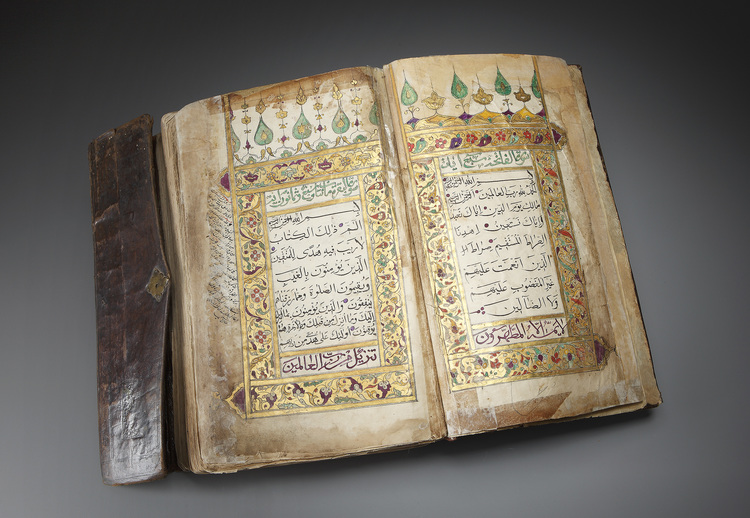 بسم الله الرحمن الرحيم
الحمد لله رب العالمين
مالك يوم الدين اياك نعبد
واياك نستعين اهدنا
الصراط المستقيم صراط
الذين انعمت عليهم
غير المغضوب عليهم
ولا الضالين
لا يمسه الا المطهرون
بسم الله الرحمن الرحيم
الم ذلك الكتاب
لا ريب فيه هدى للمتقين
الذين يؤمنون بالغيب
ويقيمون الصلوة ومما رزقناهم
ينفقون والذين يؤمنون بما انزل
اليك وما انزل من قبلك وبالاخرة هم
يوقنون اولئك على هدى من ربهم
تنزيل من رب العالمين